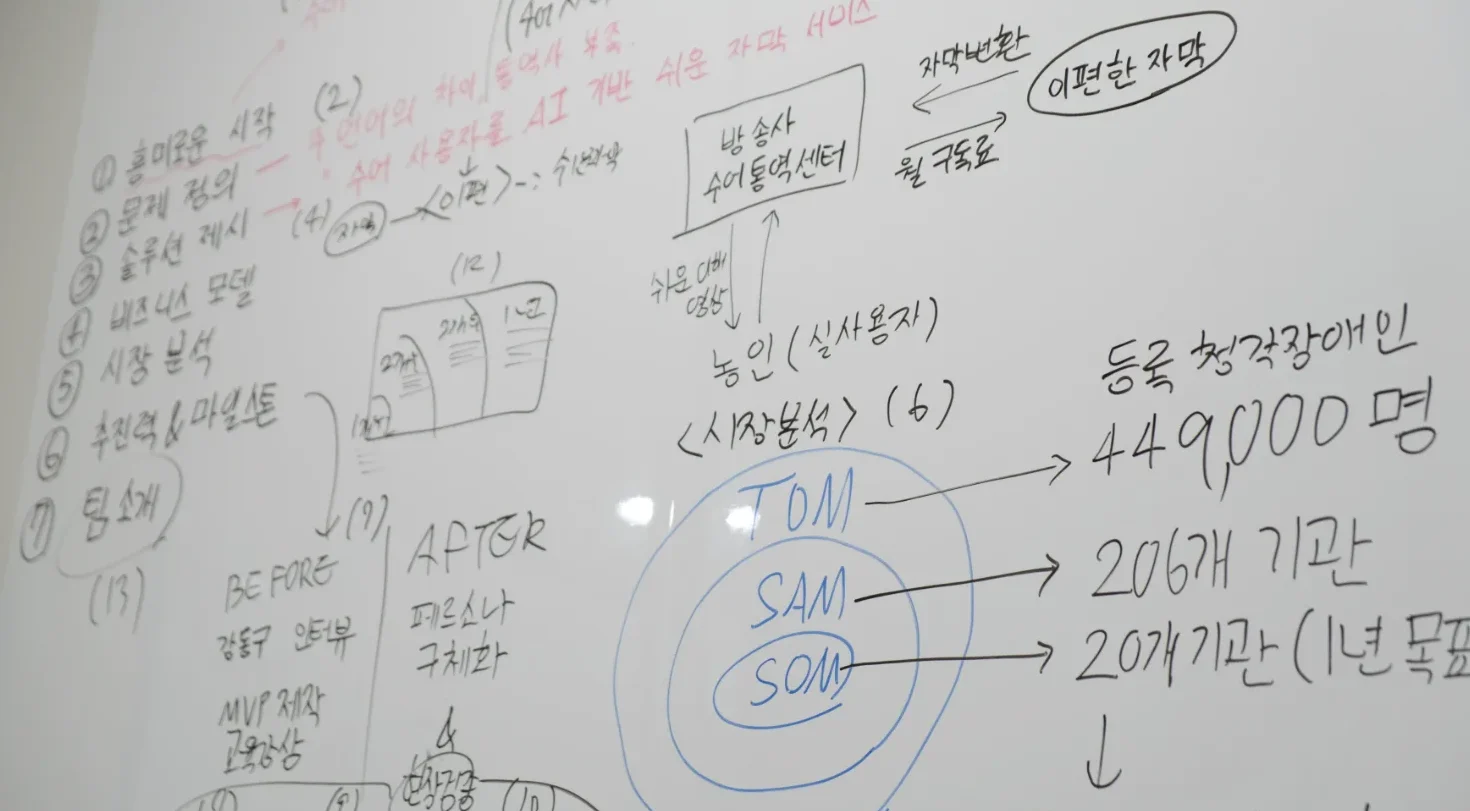 ① 흥미로운 시작 (2)
② 문제 정의 — 두 언어의 차이, 통역사 부족.
③ 솔루션 제시 → 수어 사용자를 AI 기반 쉬운 자막 서비스
(4) 자막 → <이편>
④ 비즈니스 모델
⑤ 시장 분석
⑥ 추진력 & 마일스톤
⑦ 팀 소개
(13)
(12)
1년
(9)
BEFORE
강동구 인터뷰
MVP 제작
AFTER
페르소나
구체화
&
방송사
수어통역센터
자막변환
이편한 자막
월 구독료
쉬운
영상
농인 (실사용자)
<시장분석> (6)
TOM
SAM
SOM
등록 청각장애인
449,000 명
206개 기관
20개 기관 (1년 목표